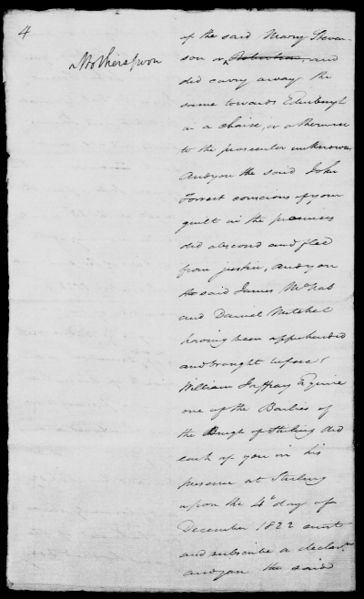 4
of the said Mary Steven-
Wotherspoon
son or Robertson, and
did carry away the
same towards Edinburgh
in a chaise, or otherwise
to the prosecutor unknown
And you the said John
Forrest conscious of your
guilt in the premises
did abscond and flee
from justice, And you
the said James McNab
and Daniel Mitchel
having been apprehended
and brought before
William Jaffray Esquire
one of the Bailies of
the Burgh of Stirling did
each of you in his
presence at Stirling
upon the 4th day of
December 1822 emit
and subscribe a declarn
and you the said